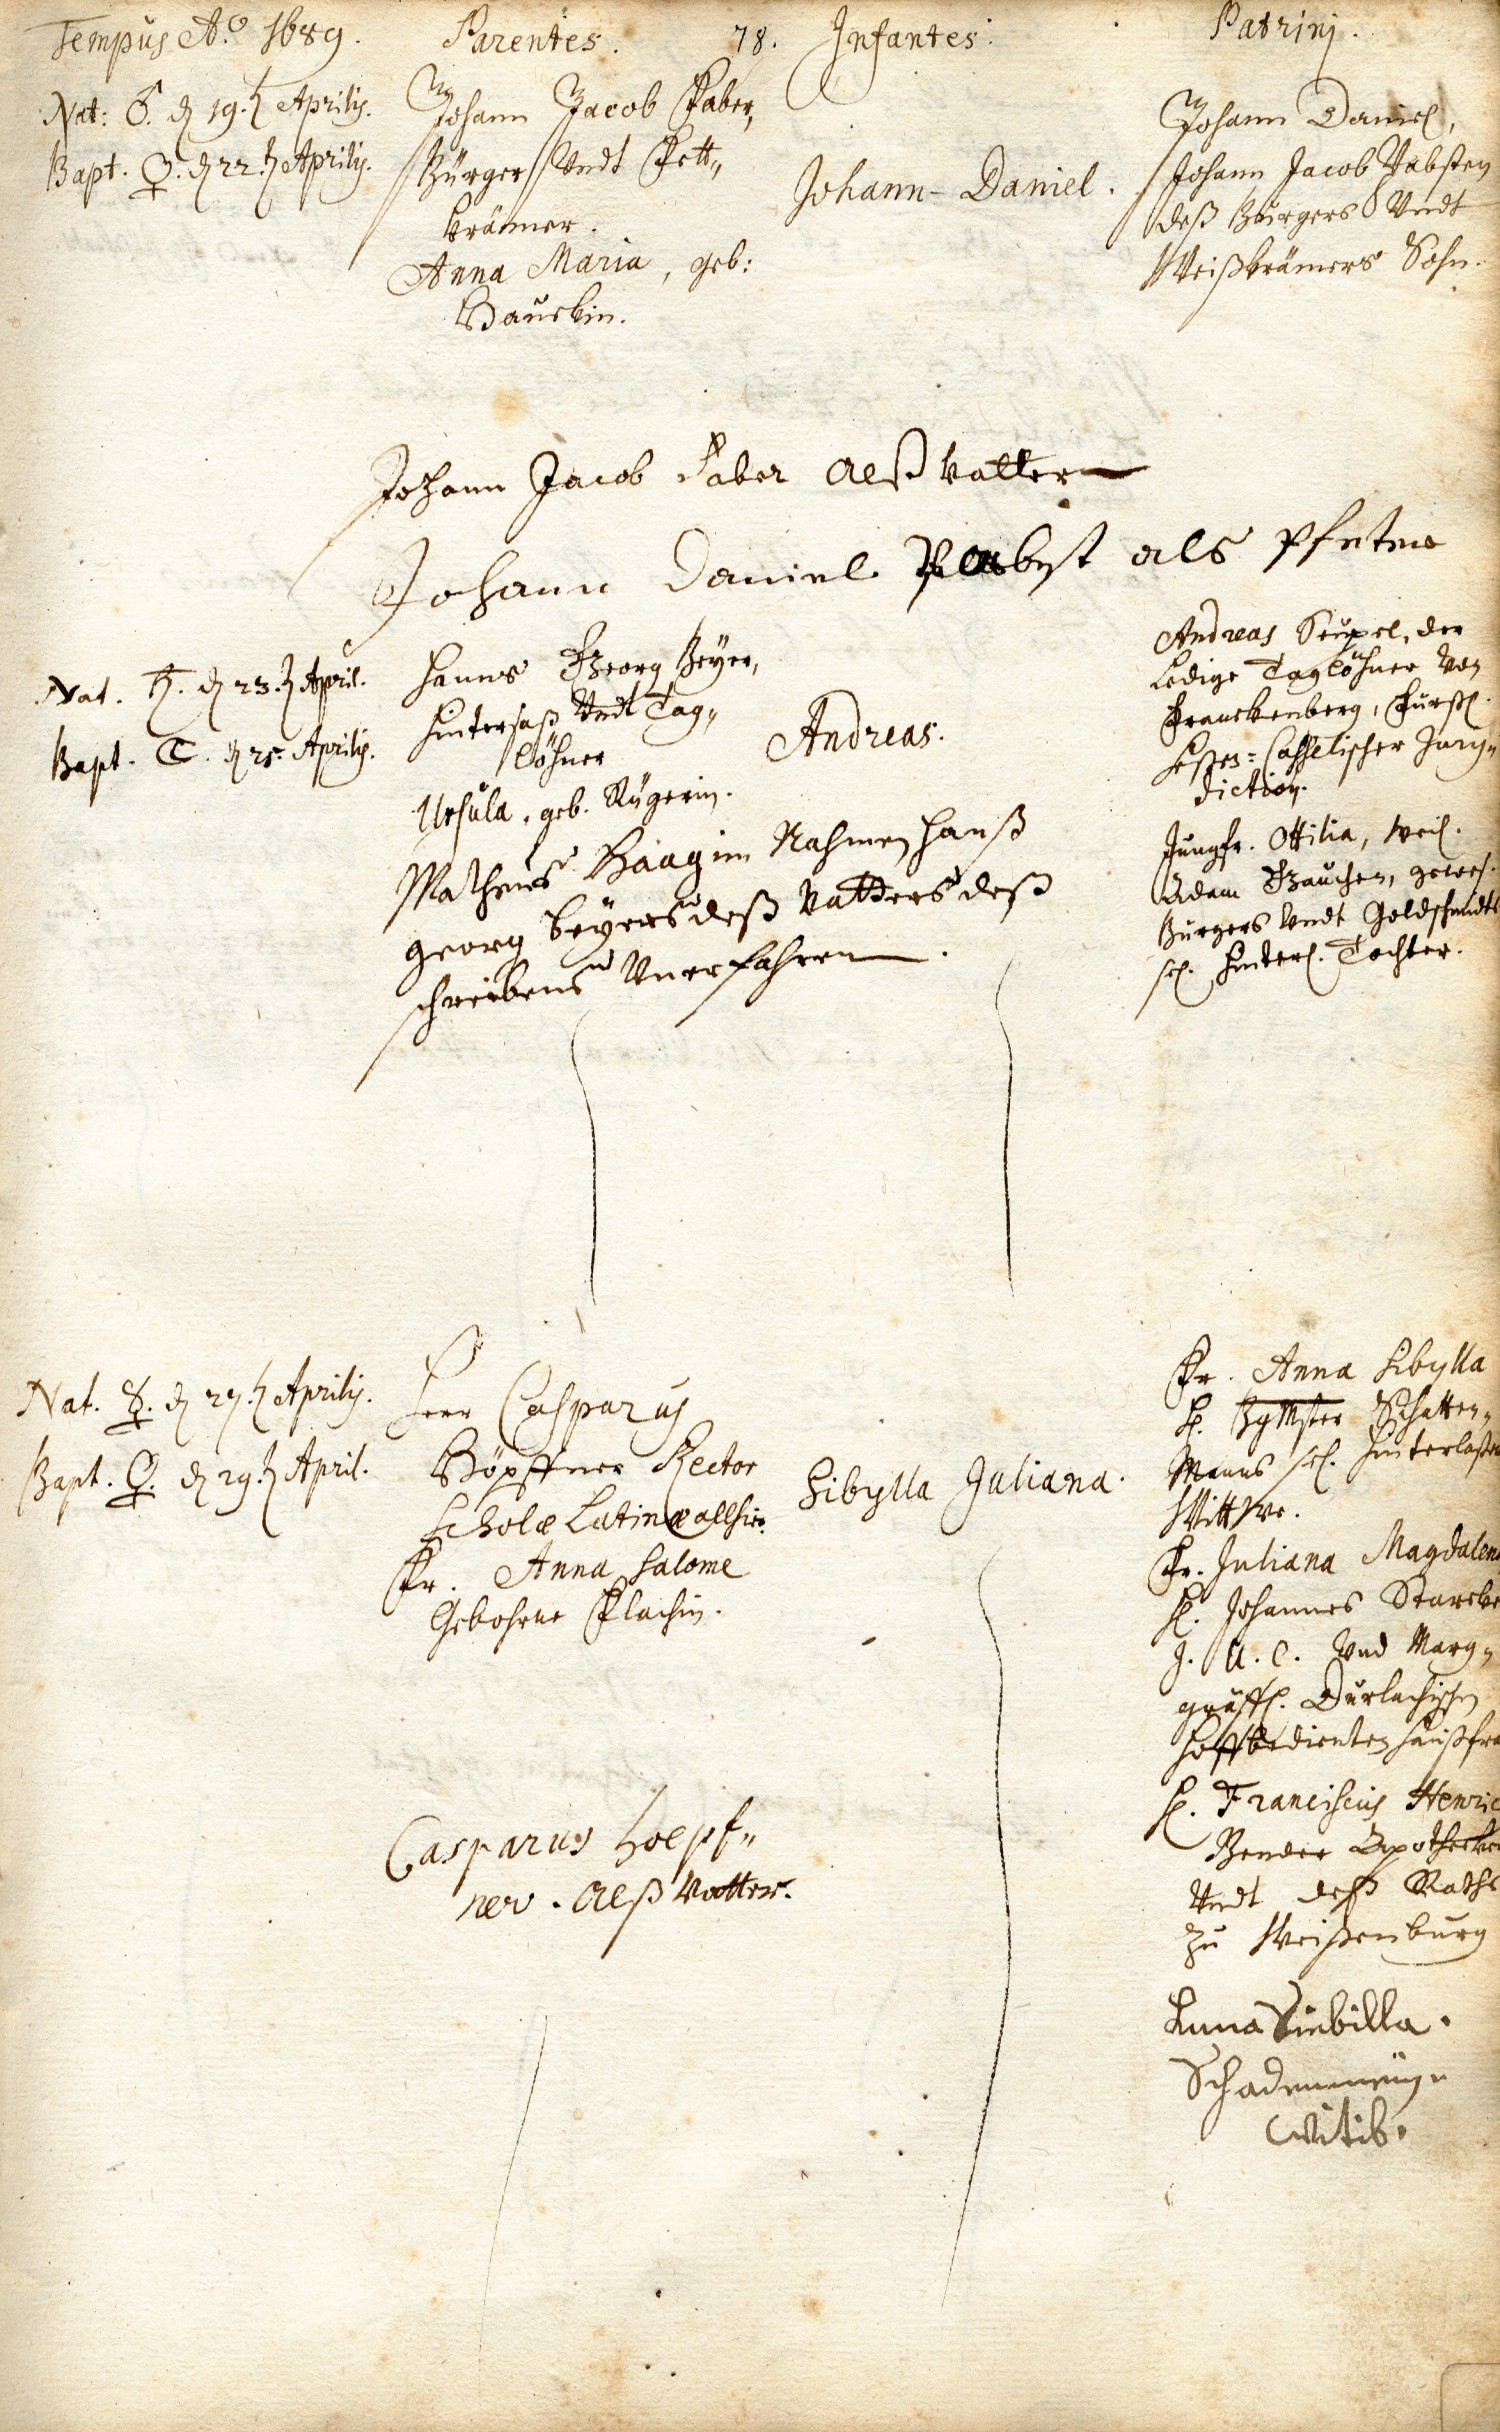 Tempus Aō. 1689. Parentes. 78. Infantes. Patrini.
Nat: ♂. d. 19. Aprilis.
Bapt. ♀. d. 22. Aprilis.
Johann Jacob Faber,
Burger Undt Fett„
krämer.
Anna Maria, geb:
Hauckin.
Johann-Daniel.
Johann Daniel,
Johann Jacob Pabsten
deß Burgers Undt
Weißkrämers Sohn.
Johann Jacob Faber Alß Vatter
Johann Daniel Pabst als Pfetter
Nat. ♄. d. 23. April.
Bapt. ☾. d. 25. Aprilis.
Hanns Georg Beyer,
Hintersaß Undt Tag„
löhner
Ursula, geb. Rügerin.
Andreas.
Andreas Seupel, der
Ledige Taglöhner Von
Franckenberg, Fürstl.
Hessen-Casselischer Juris„
diction.
Jungfr. Ottilia, weil.
Adam Bauchen, gewes.
Burgers Undt Goldschmidts
sel. hinterl. Tochter.
Matheus Haag im Nahmen Hanß
georg beyers deß Vatters deß
schreibens Unerfahren.
Nat. ☿. d. 27. Aprilis.
Bapt. ♀. d. 29. April.
Herr Casparus
Höpffner Rector
Scholæ Latinæ allhier.
Fr. Anna Salome
Gebohrne Flachin.
Sibylla Juliana.
Fr. Anna Sibylla
H. Schatten„
Manns sel. hinterlaßen
Wittwe.
Fr. Juliana Magdalena
H. Johannes Starcke
J. U. C. Und Marg„
gräffl. Durlachischen
Hoffbedienten haußfra
H. Franciscus Henric
Bender Apothecker
Undt deß Raths
zu Weissenburg
Casparus Hoepf„
ner. Alß Vatter.
Anna Siebilla.
witib.